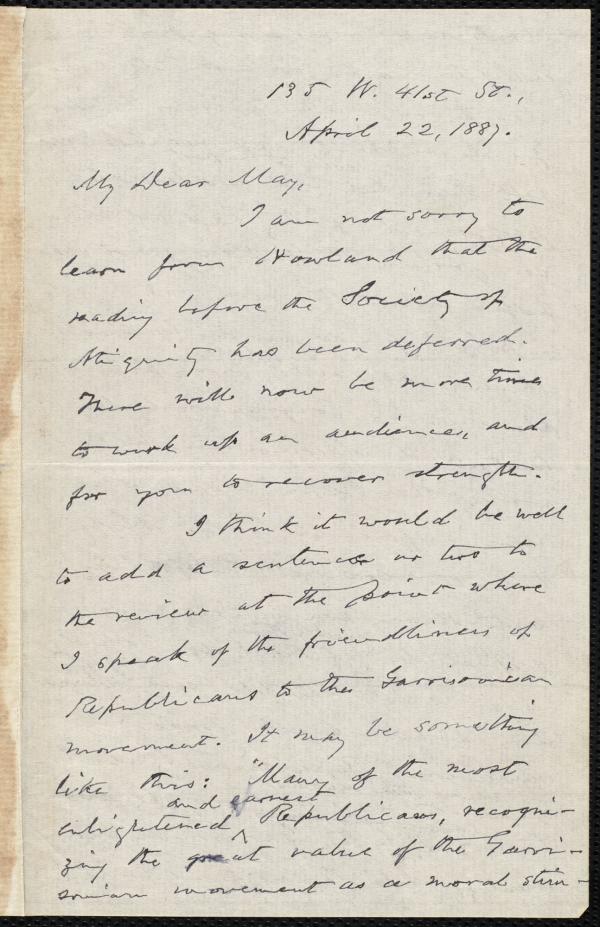 135 W. 41st St.,
April 22, 1887.
My Dear May,
I am not sorry to
learn from Howland that the
reading before the Society of
Atiquity has been deferred.
There will now be more time
to work up an audience, and
for you to recover strength.
I think it would be well
to add a sentence or two to
the review at the point where
I speak of the friendliness of
Republicans to the Garrisonian
movement. It may be something
like this: "Many of the most
and earnest
enlightened ^ Republicans, recogni-
zing the great value of the Garri-
sonian movement as a moral stim-